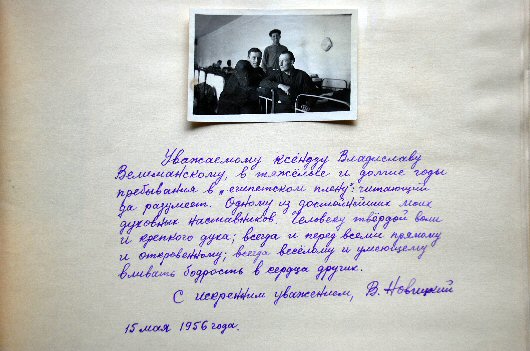 Уважаемому ксёндзу Владиславу
Велиманскому, в тяжёлые и долгие годы
пребывания в „египетском плену": читающий
да разумеет. Одному из достойнейших моих
духовных наставников. Человеку твёрдой воли
и крепкого духа; всегда и перед всеми прямому
и откровенному; всегда весёлому и умеющему
вливать бодрость в сердца других.
С искренним уважением, В. Новицкий
15 мая 1956 года.